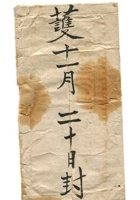 護十一月二十日封